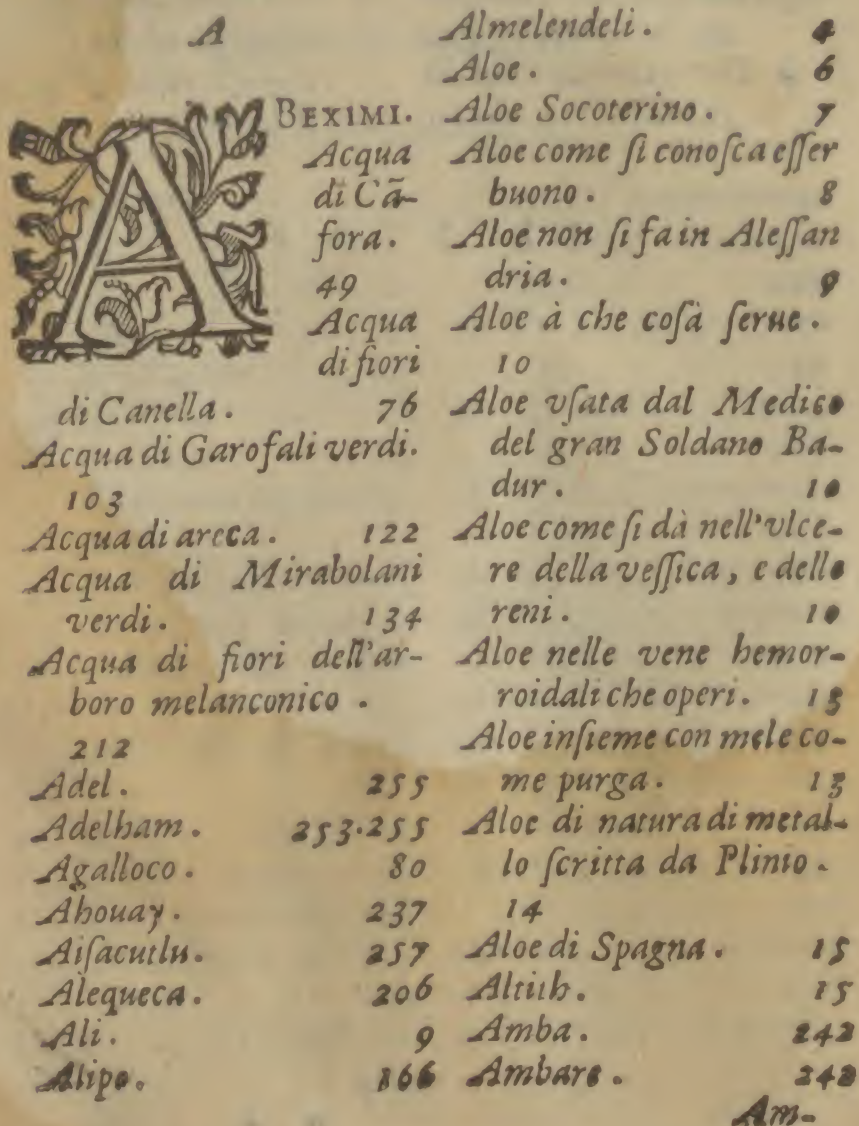 A
ABEXIMI.
Acqua
di Cã-
fora.
49
Acqua
di fiori
di Canella. 76
Acqua di Garofali verdi.
103
Acqua di areca. 122
Acqua di Mirabolani
verdi. 134
Acqua di fiori dell'ar-
boro melanconico.
212
Adel. 255
Adelham. 253.255
Agalloco. 80
Ahouay. 237
Aiſacutlu. 257
Alequeca. 206
Ali. 9
Alipo. 166
Almelendeli. 4
Aloe. 6
Aloe Socoterino. 7
Aloe come ſi conoſca eſſer
buono. 8
Aloe non ſi fa in Aleſſan
dria. 9
Aloe à che coſà ſerue.
10
Aloe vſata dal Medico
del gran Soldano Ba-
dur. 10
Aloe come ſi dà nell'vlce-
re della veſſica, e delle
reni. 10
Aloe nelle vene hemor-
roidali che operi. 13
Aloe inſieme con mele co-
me purga. 13
Aloe di natura di metal-
lo ſcritta da Plinio.
14
Aloe di Spagna. 15
Altiih. 15
Amba. 242
Ambare. 242
Am-